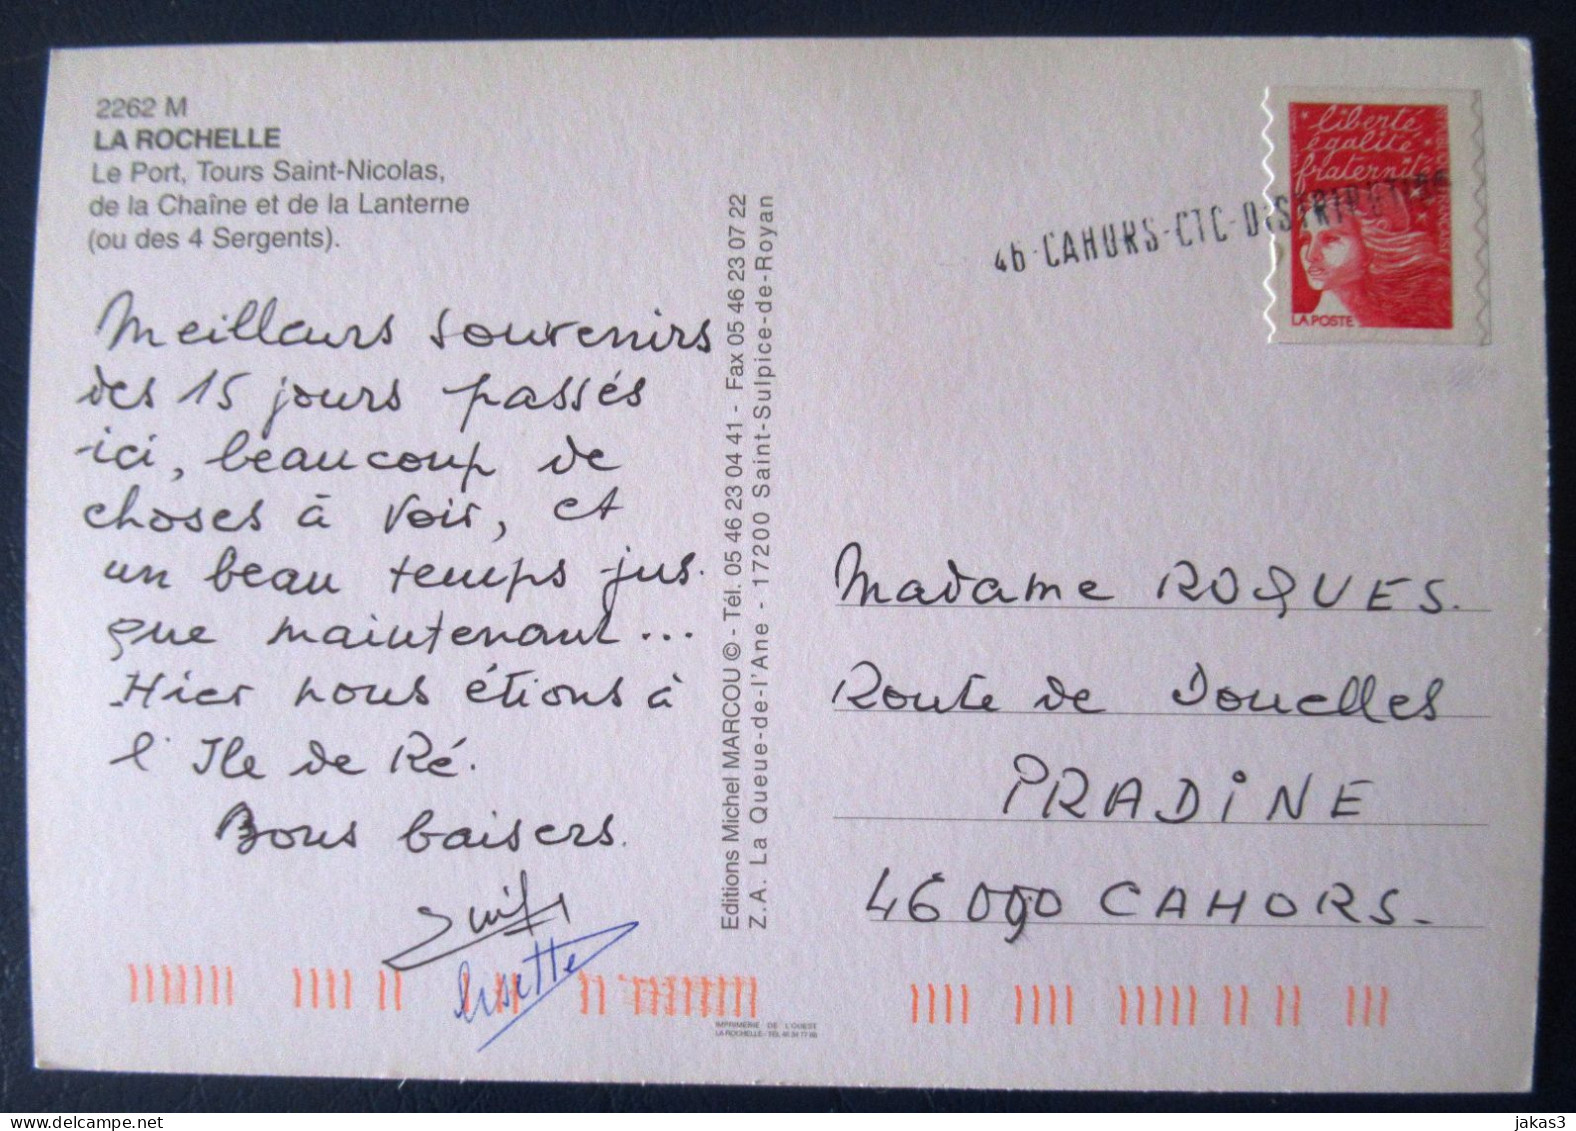 2262 M
LA ROCHELLE
Le Port, Tours Saint-Nicolas,
de la Chaîne et de la Lanterne
(ou des 4 Sergents).
Meilleurs souvenirs
des 15 jours passés
ici, beaucoup de
choses à voir, et
un beau temps jus.
que maintenant...
Hier nous étions à
l'Ile de Ré.
Bons baisers.
Lisette
Editions Michel MARCOU © - Tél. 05 46 23 04 41 - Fax 05 46 23 07 22
Z.A. La Queue-de-l'Ane - 17200 Saint-Sulpice-de-Royan
IMPRIMERIE DE L'OUEST
liberté
égalité
fraternité
LA POSTE
46-CAHORS-CTC-DISTRIBUTION
Madame ROQUES.
Route de Douelles
PRADINE
46000 CAHORS.
jakas3
delcampe.net